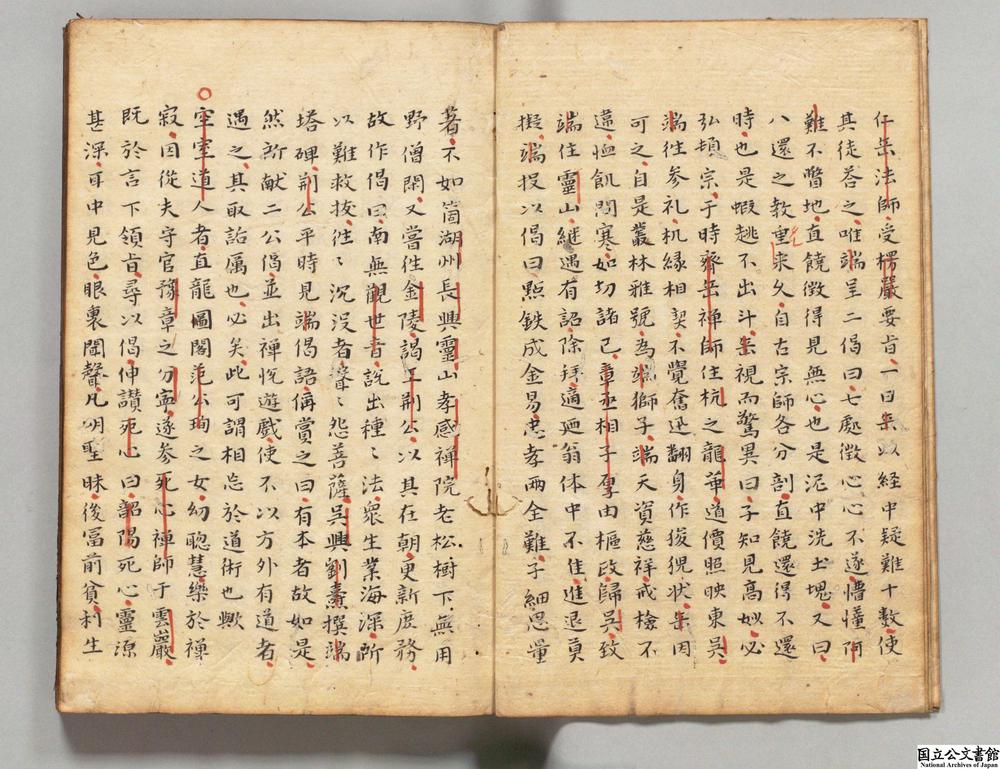 仁岳法師受楞嚴要旨一日岳以經中疑難十數使
其徒荅之唯端呈二偈曰七處徵心心不遂懵懂阿
難不瞥地直饒徵得見無心也是泥中洗土塊又曰
八還之教重来久自古宗師各分剖直饒還得不還
時也是蝦趒不出斗岳視而驚異曰子知見高妙必
弘頓宗于時齊岳禅師住杭之龍華道價照映東吳
端往参礼机縁相契不覺奮迅翻身作狻猊状岳因
可之自是叢林雅號為端獅子端天資慈祥戒撿不
違恤飢問寒如切諸己章丞相子厚由樞政歸吳致
端住靈山継遇有詔除拜適廼翁体中不佳進退莫
擬端投以偈曰點鉄成金易忠孝兩全難子細思量
著不如箇湖州長興靈山孝感禅院老松樹下無用
野僧閑又嘗往金陵謁王荆公以其在朝更新庻務
故作偈曰南無觀世音說出種〻法衆生業海深所
以難救拔往〻沉没者聲〻怨菩薩吳興劉燾撰端
塔碑荆公平時見端偈語偁賞之曰有本者故如是
然所献二公偈並出禅恱遊戲使不以方外有道者
遇之其取詬厲也必矣此可謂相忘於道術也歟
空室道人者直龍圖閣范公珣之女幼聡慧樂於禅
寂因從夫守官豫章之分寧遂参死心禅師于雲巖
既於言下領旨尋以偈伸讃死心曰韶陽死心靈源
甚深耳中見色眼裏聞聲凡明聖昧後冨前貧利生
化
国立公文書館
National Archives of Japan